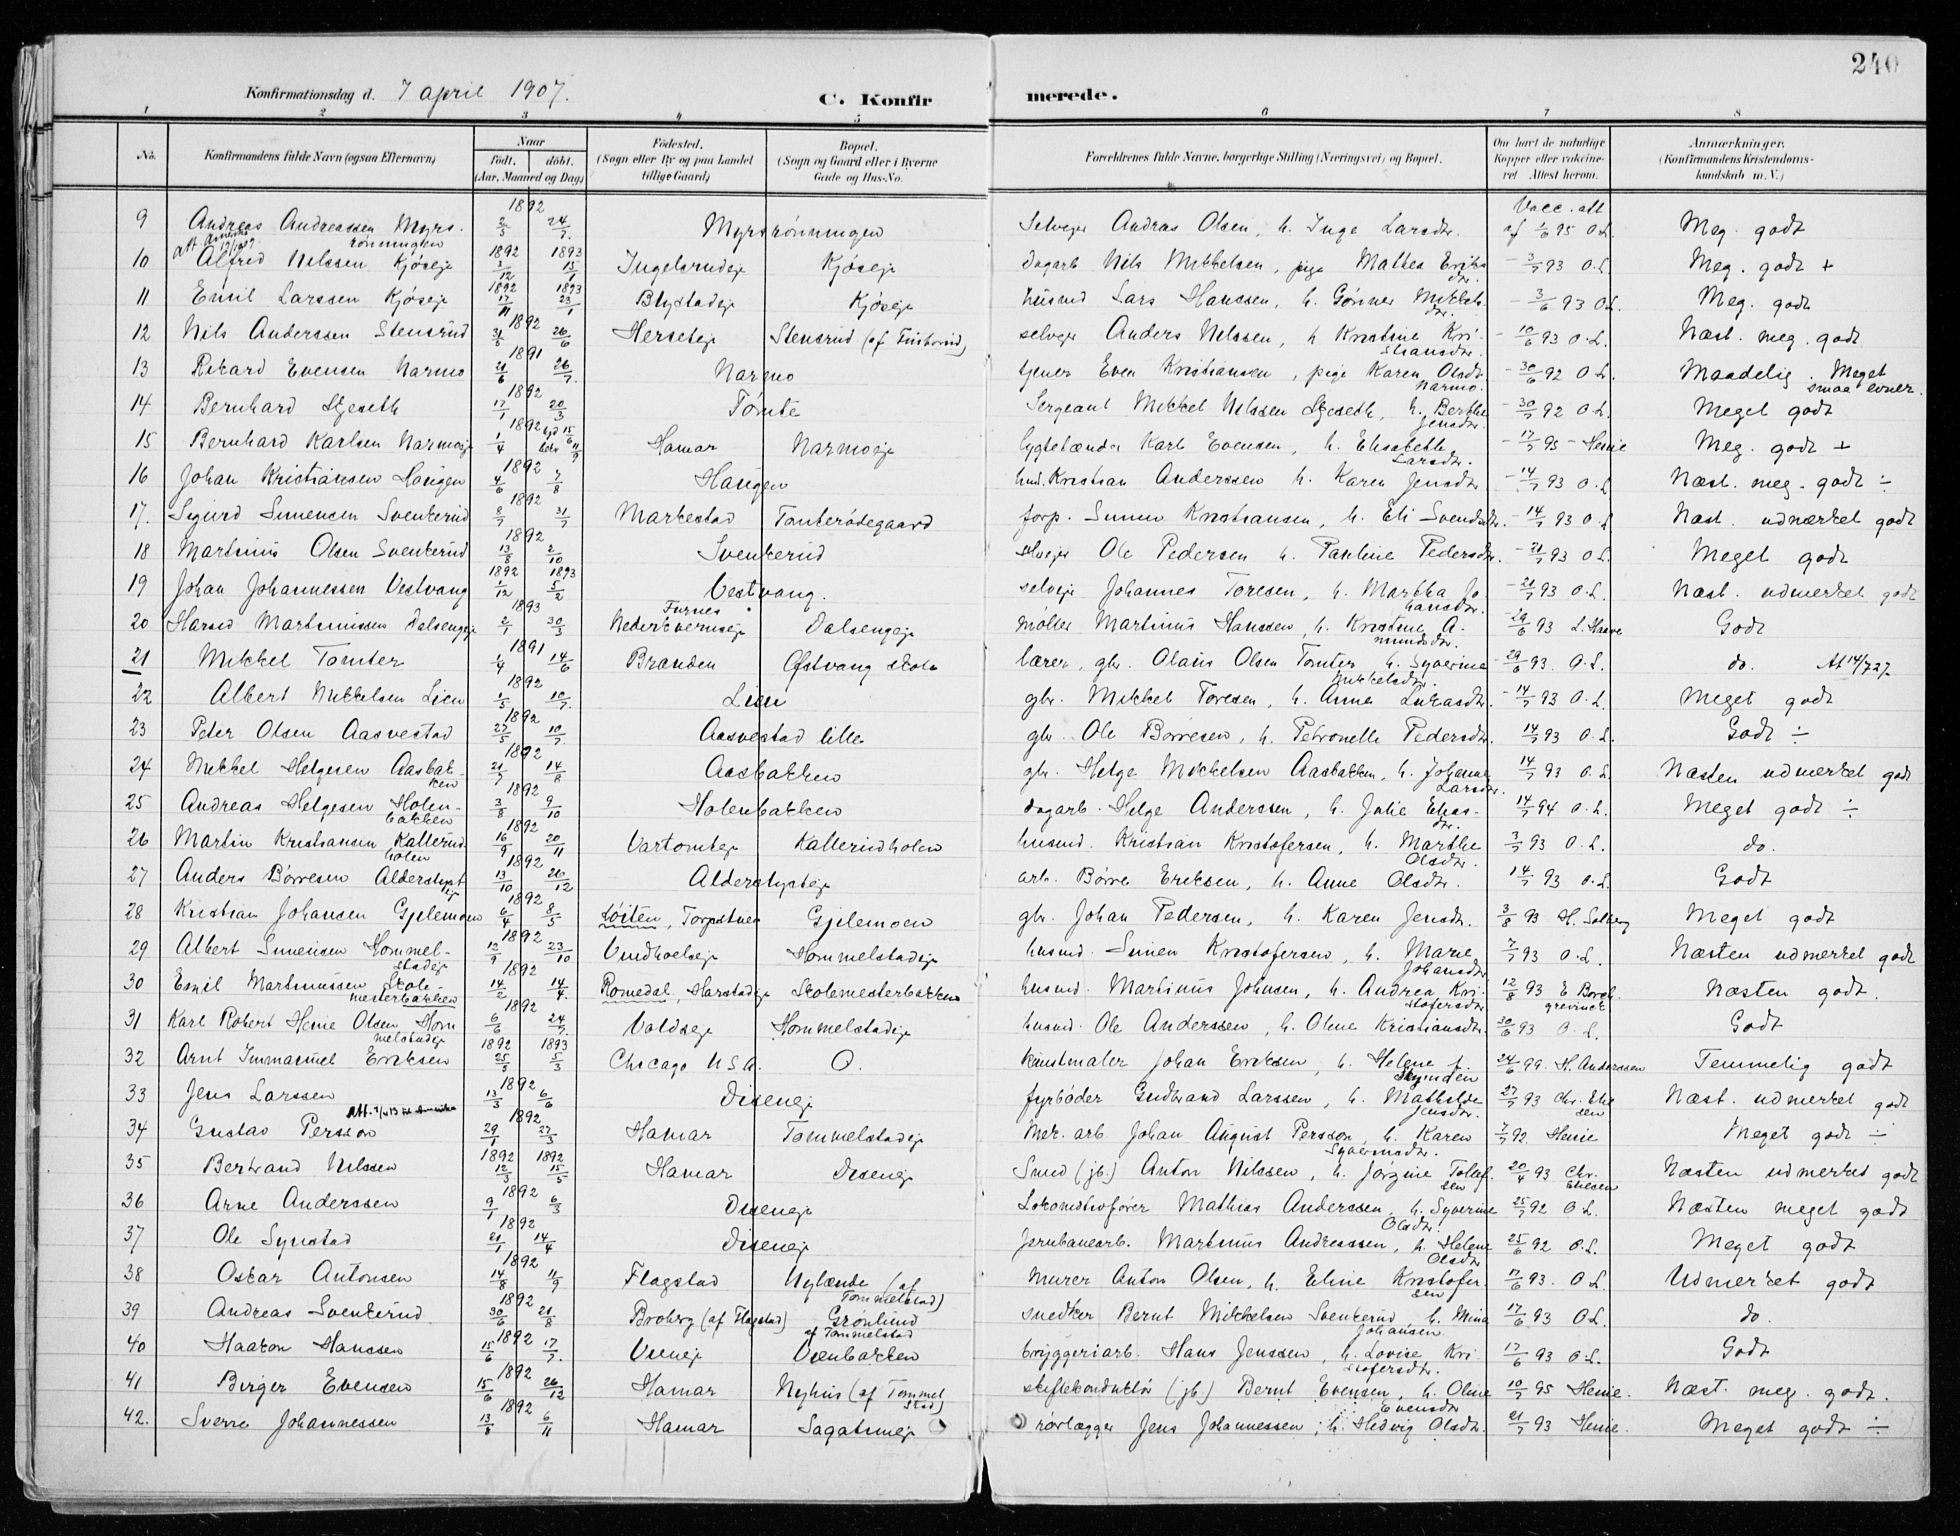 240
Konfirmationsdag d. 7 april 1907.
C. Konfirmerede.
1 2 3 4 5 6 7 8
No.
Konfirmandens fulde Navn (ogsaa Efternavn)
Naar
født. døbt.
(Aar, Maaned og Dag)
Fødested.
(Sogn eller By og paa Landet
tillige Gaard)
Bopæl.
(Sogn og Gaard eller i Byerne
Gade og Hus-No.
Forældrenes fulde Navne, borgerlige Stilling (Næringsvei) og Bopæl.
Om havt de naturlige
Kopper eller vakcine-
ret Attest herom.
Anmærkninger.
(Konfirmandens Kristendoms-
kundskab m. V.)
9 Andreas Andreassen Myrsrønningen 1892 2/3 24/7 Myrsrønningen Selveier Andras Olsen, h. Inge Larsdtr. Vacc. att af 1/6 95 O.L. Meg. godt
10 Alfred Nilssen Kjøseje 1892 1893 3/12 15/1 Ingelsrudeje Kjøseje Dagarb Nils Mikkelsen, pige Mathea Eriksdtr. 3/7 93 O.L. Meg. godt +
11 Emil Larssen Kjøseje 1892 1893 17/11 23/1 Blystadeje Kjøseje husmd Lars Hanssen, h. Gønner Mikkelsdtr. 3/6 93 O.L. Meg. godt
12 Nils Anderssen Stensrud 1892 31/5 26/6 Herseteje Stensrud selveje Anders Nilssen, h Kristine Kristiansdtr. 10/6 93 O.L. Næst. meg. godt
13 Rikard Evensen Narmo 1891 21/6 26/7 Narmo tjener Even Kristiansen, pige Karen Olsdt. Narmo. 30/6 92 O.L. Maadelig. Meget smaa evner.
14 Bernhard Skjeseth 1892 17/1 20/3 Tømte Sergeant Mikkel Nilssen Skjeseth, h. Berthe Jensdtr. 30/7 92 O.L. Meget godt
15 Bernhard Karlsen Narmoeje 1892 1/4 Hamar Narmoeje lygtetænder Karl Evensen, h. Elisabeth Larsdtr. 17/7 95 Heuie Meg. godt +
16 Johan Kristiansen Haugen 1892 4/6 7/8 Haugen husmd. Kristian Anderssen h. Karen Jensdtr 14/7 93 O.L. Næst. meg. godt ÷
17. Sigurd Simensen Svenkerud 1892 8/7 31/7 Markestad Tomterødegaard forp. Simen Kristiansen, h. Eli Svendsdtr. 14/7 93 O.L. Næst. udmærket godt
18 Martinus Olsen Svenkerud 1892 13/8 2/10 Svenkerud selveje Ole Pedersen h. Pauline Pedersdtr. 21/7 93 O.L. Meget godt
19 Johan Johannessen Vestvang 1892 1893 1/12 5/2 Vestvang. selveje Johannes Toresen, h. Martha Johansdtr. 21/7 93 O.L. Næst. udmerket godt
20 Martinussen Dalsengeje 1893 2/1 30/3 Furnes Dalsengeje møller Martinus Hanssen, h. Kristine Amundsdtr. 29/6 93 Godt
21 Mikkel Tomter 1891 1/9 14/6 Branden Østvang skole lærer, gbr. Olaus Olsen Tomter, h. Syverine Mikkelsdtr. 29/6 93. O.L. do. At 14/7 27.
22 Albert Mikkelsen Lien 1892 1/5 10/7 Lien gbr. Mikkel Toresen, h. Anne Lukasdtr. 14/7 93 O.L. Meget godt
23 Peter Olsen Aasvestad 1892 27/5 10/7 Aasvestad lille gbr. Ole Børresen, h. Petronelle Pedersdtr. 14/7 93 O.L. Godt ÷
24 Mikkel Helgesen Aasbakken 1892 21/7 14/8 Aasbakken gbr. Helge Mikkelsen Aasbakken, h. Johanne Larsdtr. 14/7 93 O.L. Næsten udmerket godt
25 Andreas Helgesen Holenbakken 1892 3/8 9/10 Holenbakken dagarb. Helge Anderssen, h. Julie Eliasdtr. 14/7 94 O.L. Meget godt ÷
26 Martin Kristiansen Kallerudholen 1892 16/9 20/11 Vartomteje Kallerudholen husmd. Kristian Kristofersen, h. Marthe Olsdtr. 3/7 93 O.L. do.
27 Anders Børresen Alderslysteje 1892 13/10 26/12 Alderslysteje arb. Børre Eriksen, h. Anne Olsdtr. 14/7 93 O.L. Godt
28 Kristian Johansen Gjelemoen 1892 6/4 8/5 Løiten, Gjelemoen gbr. Johan Pedersen, h. Karen Jensdtr. 3/8 93 H. Solberg Meget godt
29 Albert Simensen Hommelstadeje 1892 12/9 23/10 Vindhoelseje Hommelstadeje husmd. Simen Kristofersen, h. Marie Johansdtr 7/7 93 O.L. Næsten udmerket godt
30 Emil Martinussen Skolemesterbakken 1892 14/2 14/4. Romedal, Harstadeje Skolemesterbakken husmd. Martinus Johnsen, h. Andrea Kristofersdtr 12/8 93 E Borchgrevinck Næsten godt.
31 Karl Robert Heuie Olsen Hommelstadeje 1892 6/6 24/7 Voldseje Hommelstadeje husmd. Ole Anderssen, h. Oline Kristiansdtr. 30/6 93 O.L. Godt
32 Arnt Immanuel Eriksen 1892 1893 25/5 5/3 Chicago U.S.A. O. Kunstmaler Johan Eriksen, h. Helene f. Skynden 24/6 99. H. Anderssen Temmelig godt
33 Jens Larssen 1892 13/3 6/6 Diseneje fyrbøder Gudbrand Larssen, h. Mathilde Jensdtr. 27/7 93 Chr. Eliesen Næst. udmerket godt
34 Gustav Persson 1892 29/1 27/3 Hamar Tommelstadeje Mek. arb. Johan August Persson, h. Karen Syversdtr. 7/7 92. Heuie Meget godt ÷
35 Bertrand Nilssen 1892 1892 12/3 15/5 Hamar Diseneje Smed (jb.) Anton Nilssen, h. Jørgine Tollefsen 20/4 93 Chr. Eliesen Næsten udmerket godt
36 Arne Anderssen 1892 9/1 6/3 Diseneje Lokomotivfører Mathias Anderssen, h. Syverine Olsdtr. 25/7 92 O.L. Næsten meget godt
37 Ole Synstad 1892 21/1 14/4 Diseneje Jernbanearb. Martinus Andreassen, h. Helene Olsdtr 25/6 92 O.L. Meget godt
38 Oskar Antonsen 1892 14/8 11/9 Flagstad Nylænde (af Tommelstad) Murer Anton Olsen, h. Eline Kristofersen 17/6 93. O.L. Udmerket godt
39 Andreas Svenkerud 1892 30/6 21/8 Broberg (af Flagstad) Grønlund af Tommelstad snedker Bernt Mikkelsen Svenkerud, h. Mina Johansen 17/6 93 O.L. do.
40 Haakon Hanssen 1892 15/6 17/7. Vieneje Vienbakken bryggeriarb. Hans Jenssen, h. Lovise Kristofersdtr. 17/6 93 O.L. Godt
41 Birger Evensen 1892 15/6 26/12 Hamar Nyhus (af Tommelstad) skiftekonduktør (jb.) Bernt Evensen, h. Oline Evensdtr 10/7 95 Heuie. Næst. meg. godt.
42. Sverre Johannessen 1892 13/8 6/11 Hamar Sagatuneje rørlægger Jens Johannessen, h. Hedvig Olsdtr. 21/7 93 Heuie. Meget godt ÷